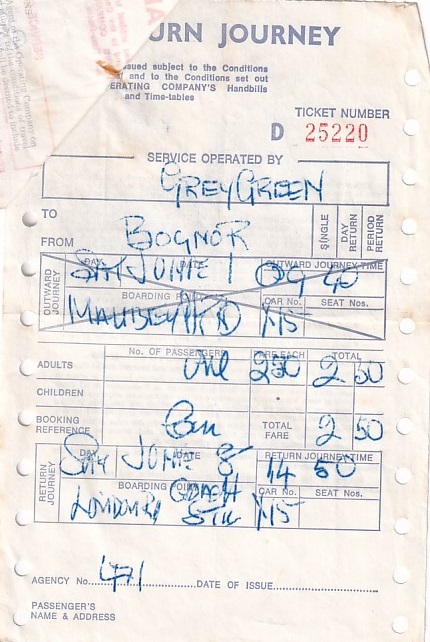 URN JOURNEY
ssued subject to the Conditions
and to the Conditions set out
ERATING COMPANY'S Handbills
and Time-tables
TICKET NUMBER
D 25220
SERVICE OPERATED BY
GREYGREEN
TO
SINGLE
DAY RETURN
PERIOD RETURN
FROM BOGNOR
OUTWARD JOURNEY
DAY DATE OUTWARD JOURNEY TIME
SAT JUNE 1 09 40
BOARDING POINT CAR No. SEAT Nos.
No. OF PASSENGERS FARE EACH TOTAL
ADULTS One 250 2 50
CHILDREN
BOOKING REFERENCE TOTAL FARE 2 50
RETURN JOURNEY
DAY DATE RETURN JOURNEY TIME
SAT JUNE 8 14 50
BOARDING POINT CAR No. SEAT Nos.
LONDON RD COACH STN
AGENCY No. 471 DATE OF ISSUE
PASSENGER'S
NAME & ADDRESS